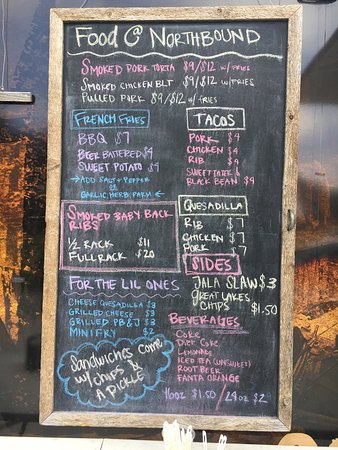 Food @ Northbound
Smoked Pork Torta $9/$12 w/fries
Smoked Chicken BLT $9/$12 w/fries
Pulled Pork $9/$12 w/fries
French Fries
BBQ $7
Beer Battered $4
Sweet Potato $4
→ Add Salt + Pepper
or
Garlic, Herb, Parm ←
Tacos
Pork $4
Chicken $4
Rib $4
Sweet Tater &
Black Bean $4
Smoked Baby Back
Ribs
1/2 Rack $11
Full Rack $20
Quesadilla
Rib $7
Chicken $7
Pork $7
Sides
Jala Slaw $3
Great Lakes
Chips $1.50
For the Lil Ones
Cheese Quesadilla $3
Grilled Cheese $3
Grilled PB&J $3
Mini Fry $2
Sandwiches come
w/ chips &
a pickle
Beverages
Coke
Diet Coke
Lemonade
Iced Tea (unsweet)
Root Beer
Fanta Orange
16oz $1.50 / 24oz $2